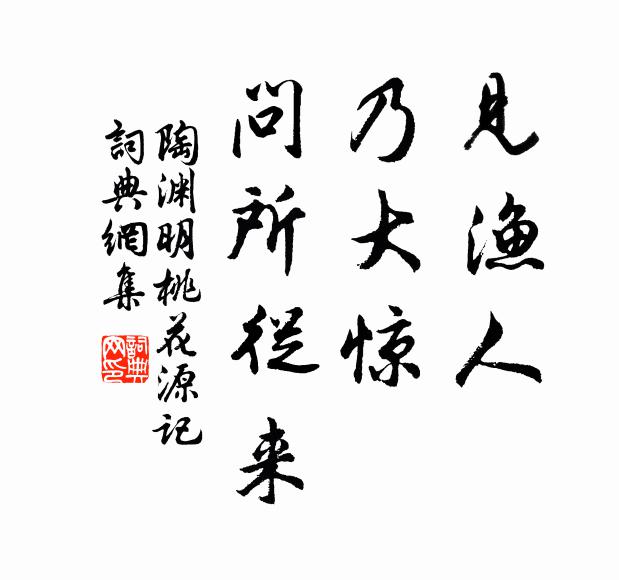 见渔人
乃大惊
问所從来
陶渊明桃花源记
詞典網集
詞典网印